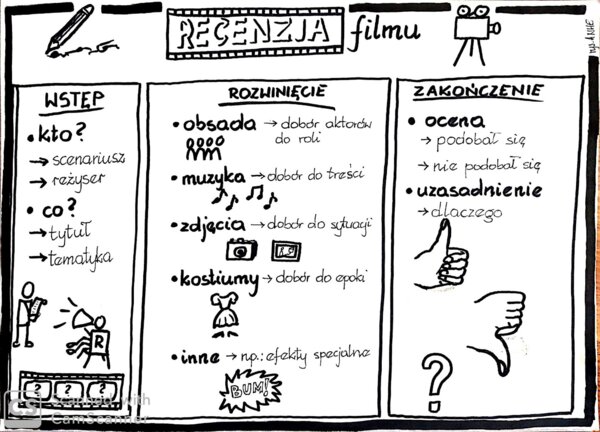 RECENZJA filmu
WSTĘP
• kto?
→ scenariusz
→ reżyser
• co?
→ tytuł
→ tematyka
R
? ? ?
ROZWINIĘCIE
• obsada → dobór aktorów
do roli
• muzyka → dobór do treści
• zdjęcia → dobór do sytuacji
• kostiumy → dobór do epoki
• inne → np.: efekty specjalne
BUM!
ZAKOŃCZENIE
• ocena
→ podobał się
→ nie podobał się
• uzasadnienie
→ dlaczego
?
CS Scanned with
CamScanner